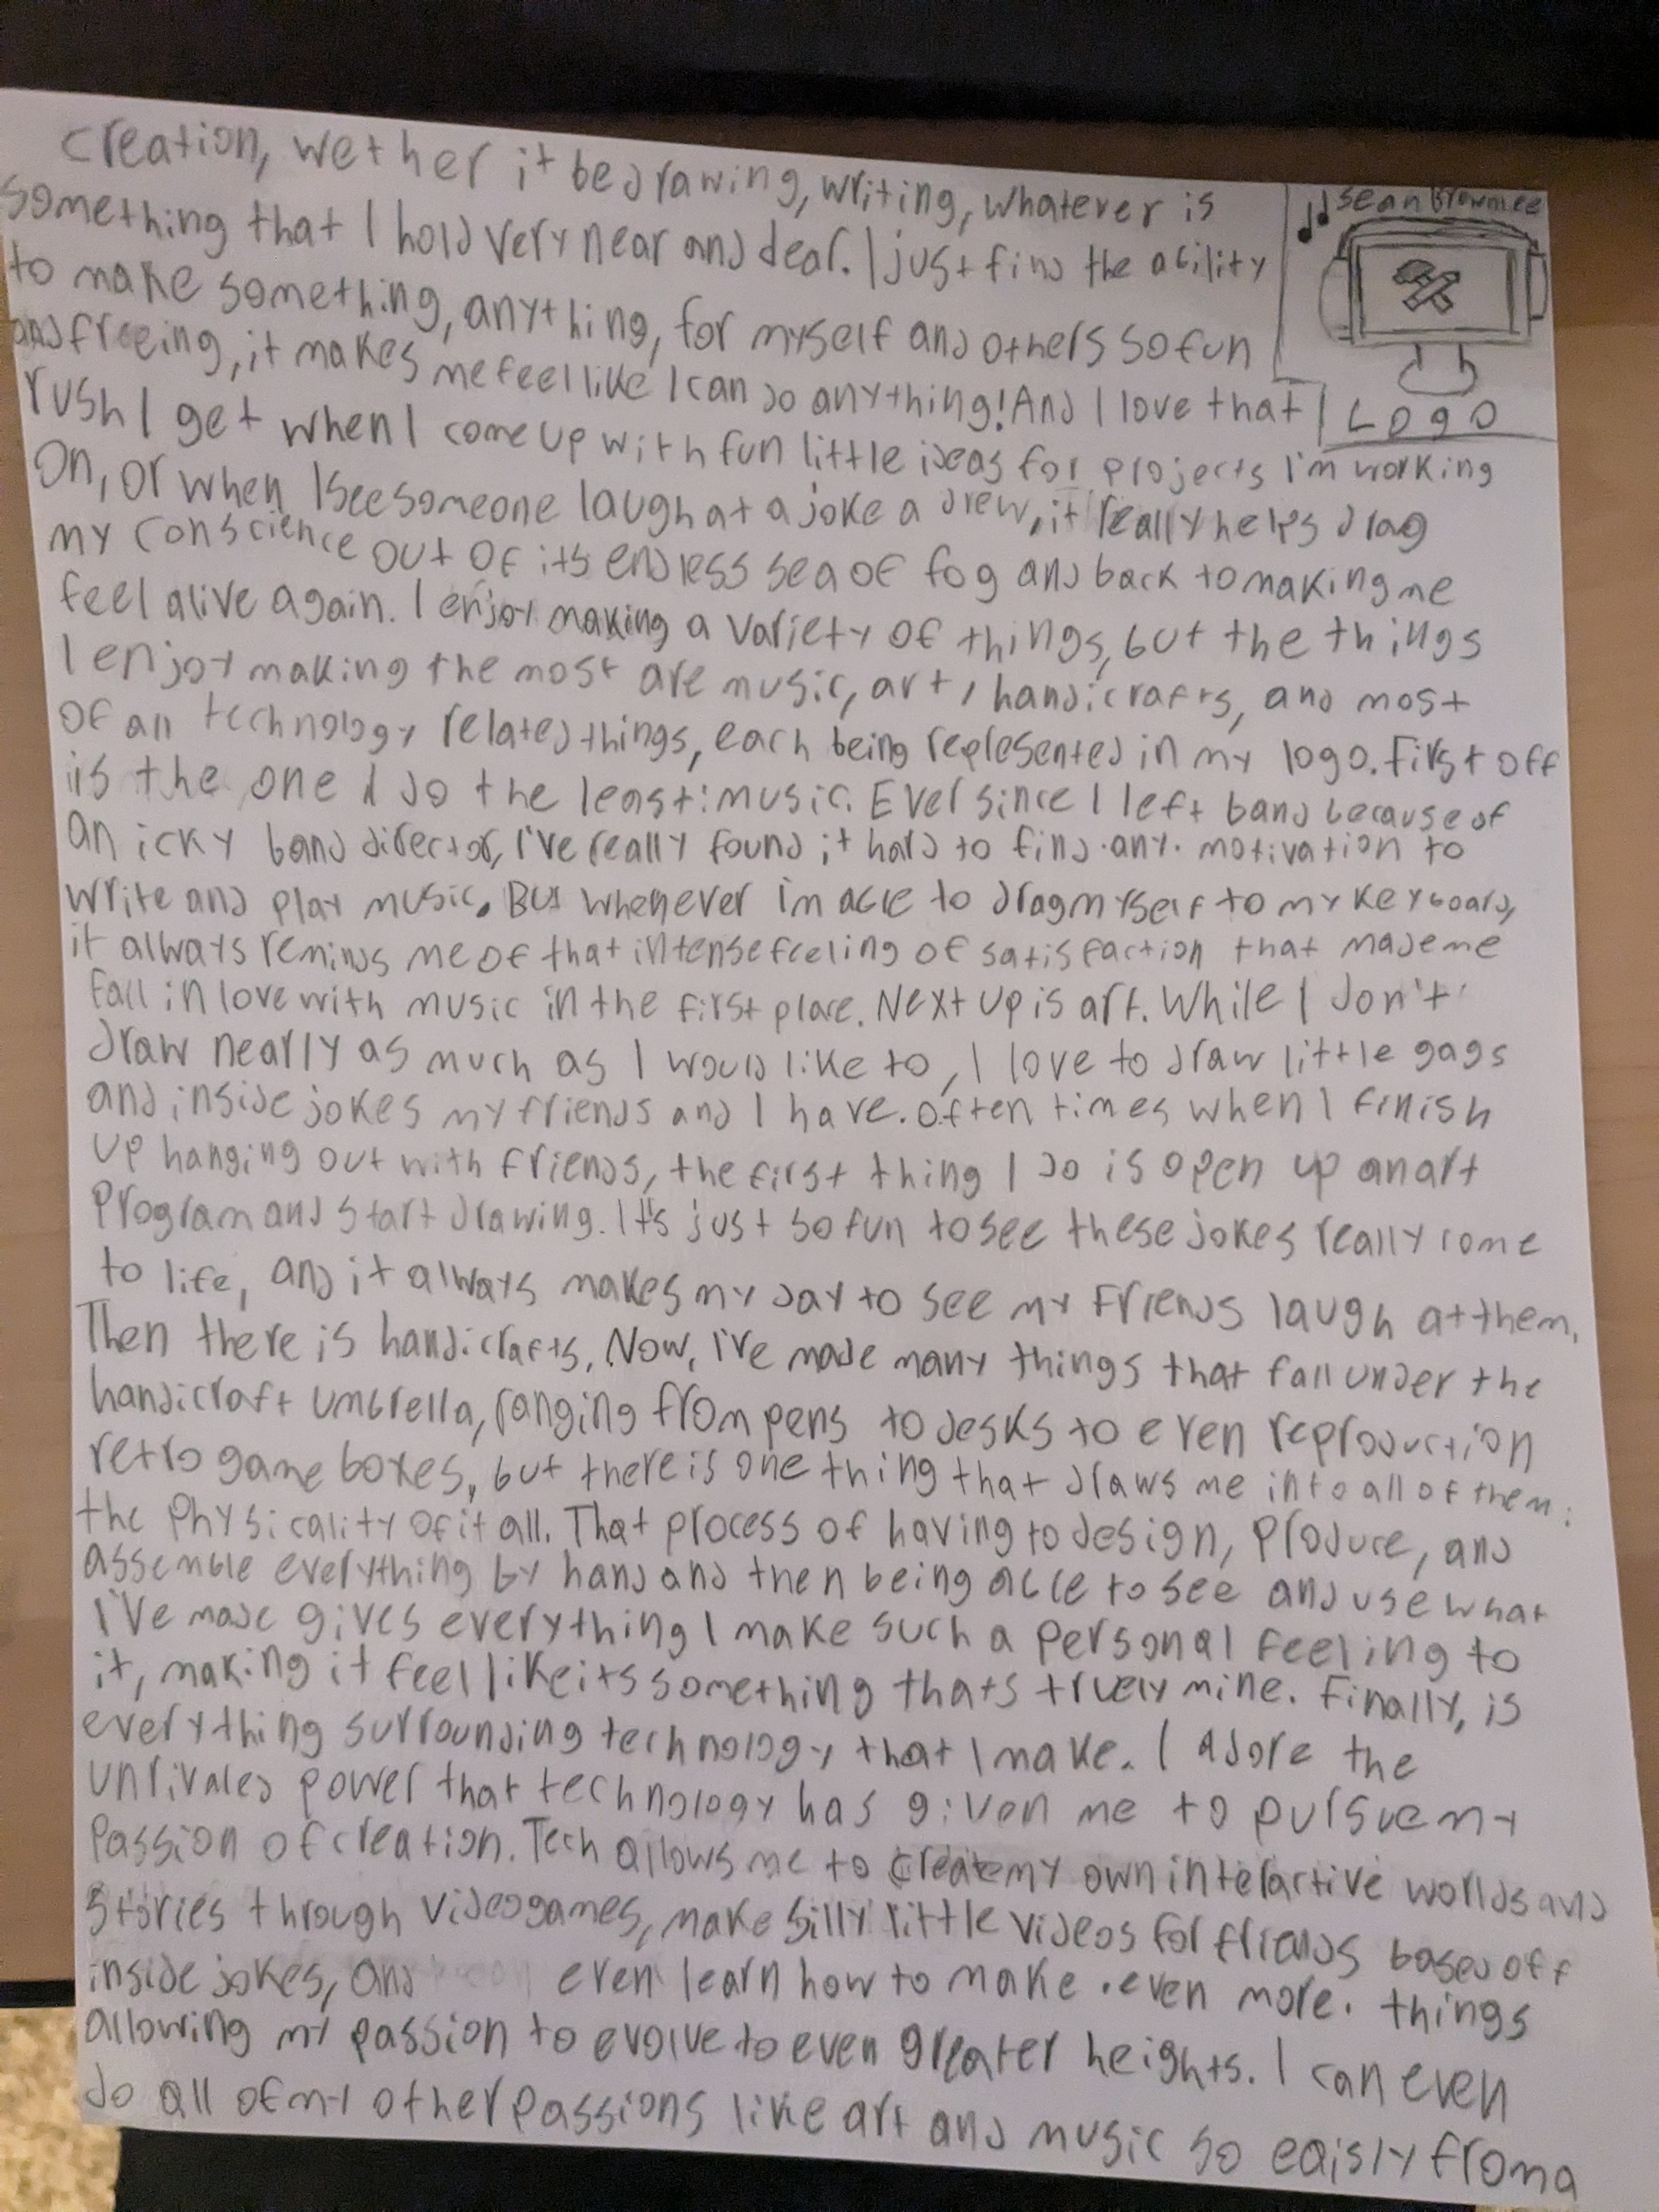 Creation, wether it be drawing, writing, whatever is
something that I hold very near and dear. I just find the ability
to make something, anything, for myself and others so fun
and freeing, it makes me feel like I can do anything! And I love that
rush I get when I come up with fun little ideas for projects I'm working
on, or when I see someone laugh at a joke a drew, it really helps drag
my conscience out of its endless sea of fog and back to making me
feel alive again. I enjoy making a variety of things, but the things
I enjoy making the most are music, art, handicrafts, and most
of all technology related things, each being represented in my logo. First off
is the one I do the least: music. Ever since I left band because of
an icky band director, I've really found it hard to find any motivation to
write and play music. But whenever im able to drag myself to my keyboard,
it always reminds me of that intense feeling of satisfaction that made me
fall in love with music in the first place. Next up is art. While I don't
draw nearly as much as I would like to, I love to draw little gags
and inside jokes my friends and I have. Often times when I finish
up hanging out with friends, the first thing I do is open up an art
program and start drawing. It's just so fun to see these jokes really come
to life, and it always makes my day to see my friends laugh at them.
Then there is handicrafts. Now, I've made many things that fall under the
handicraft umbrella, ranging from pens to desks to even reproduction
retro game boxes, but there is one thing that draws me into all of them:
the physicality of it all. That process of having to design, produce, and
assemble everything by hand and then being able to see and use what
I've made gives everything I make such a personal feeling to
it, making it feel like its something thats truely mine. Finally, is
everything surrounding technology that I make. I adore the
unrivaled power that technology has given me to pursue my
passion of creation. Tech allows me to create my own interactive worlds and
stories through videogames, make silly little videos for friends based off
inside jokes, and even learn how to make even more things
allowing my passion to evolve to even greater heights. I can even
do all of my other passions like art and music so eaisly from a
Logo